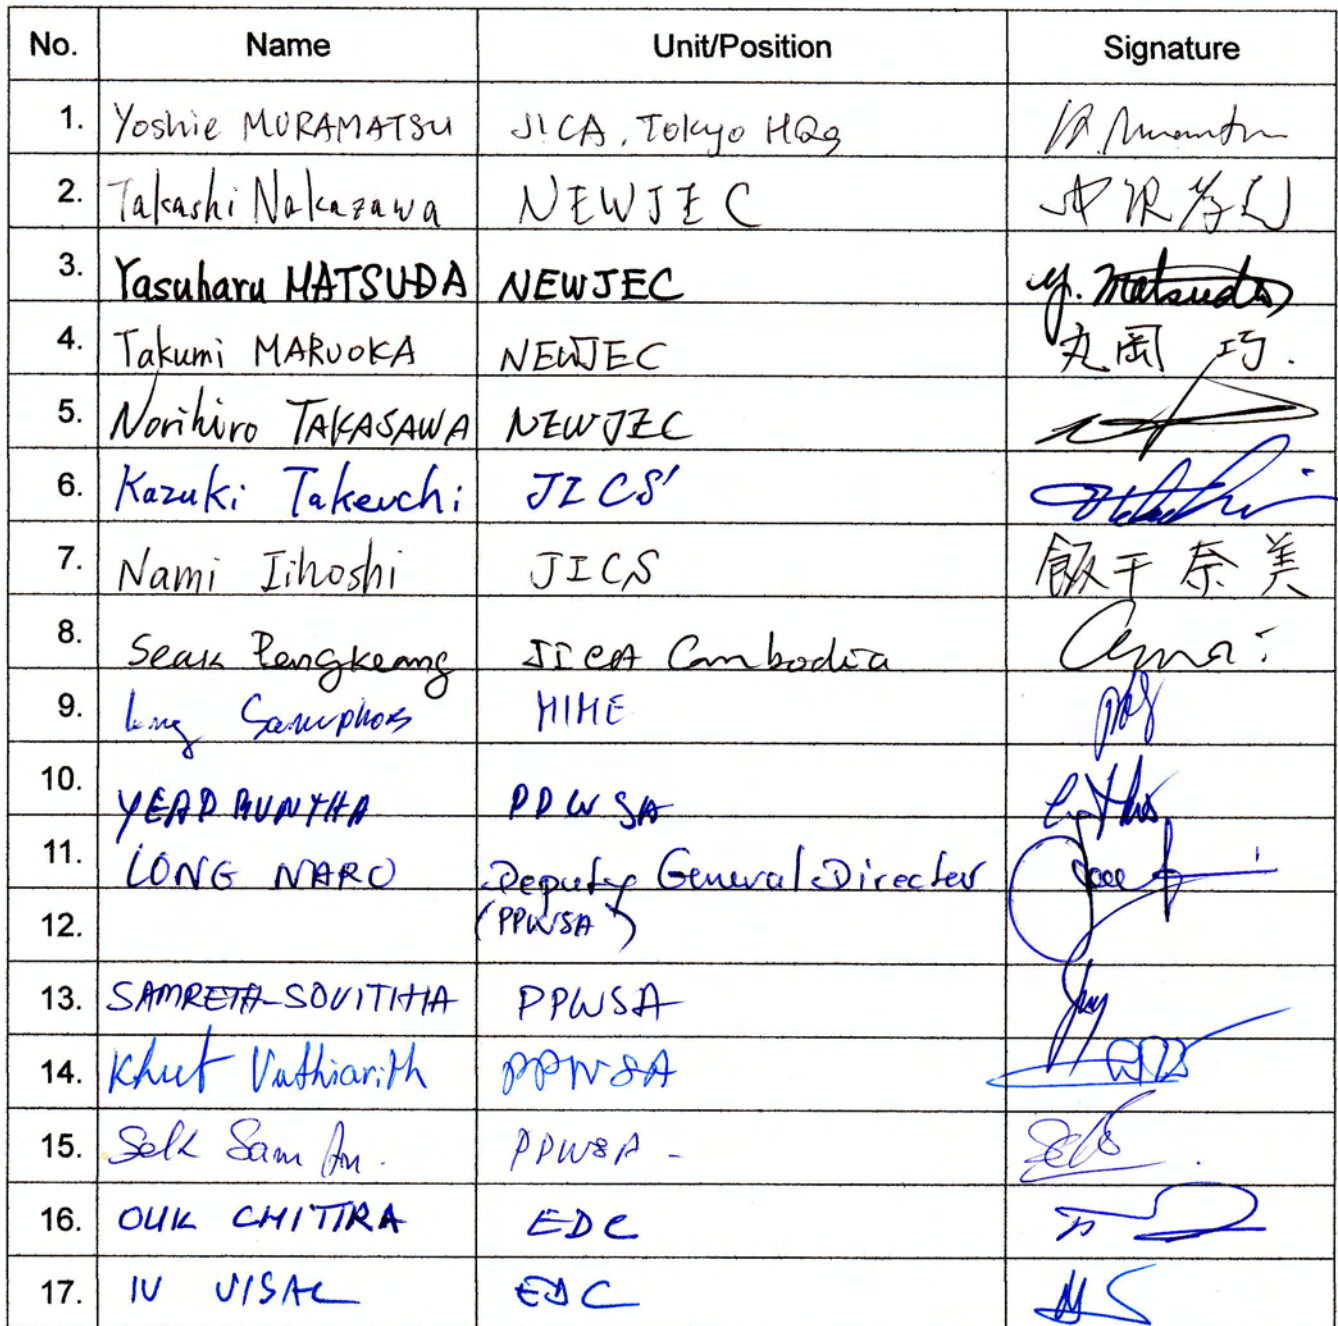 No. Name Unit/Position Signature
1. Yoshie MURAMATSU JICA, Tokyo HQs
2. Takashi Nakazawa NEWJEC
3. Yasuharu MATSUDA NEWJEC Y. Matsuda
4. Takumi MARUOKA NEWJEC 丸岡 巧.
5. Norihiro TAKASAWA NEWJEC
6. Kazuki Takeuchi JICS
7. Nami Iihoshi JICS 飯干奈美
8. Seak Pengkeang JICA Cambodia
9. Samphors MIME
10. YEAP BUNTHA PPWSA
11. LONG NARO Deputy General Director
12. (PPWSA)
13. SAMRETH SOVITHIA PPWSA
14. Khut Vuthiarith PPWSA
15. Sek Sam An. PPWSA -
16. OUK CHITTRA EDC
17. IV VISAL EDC